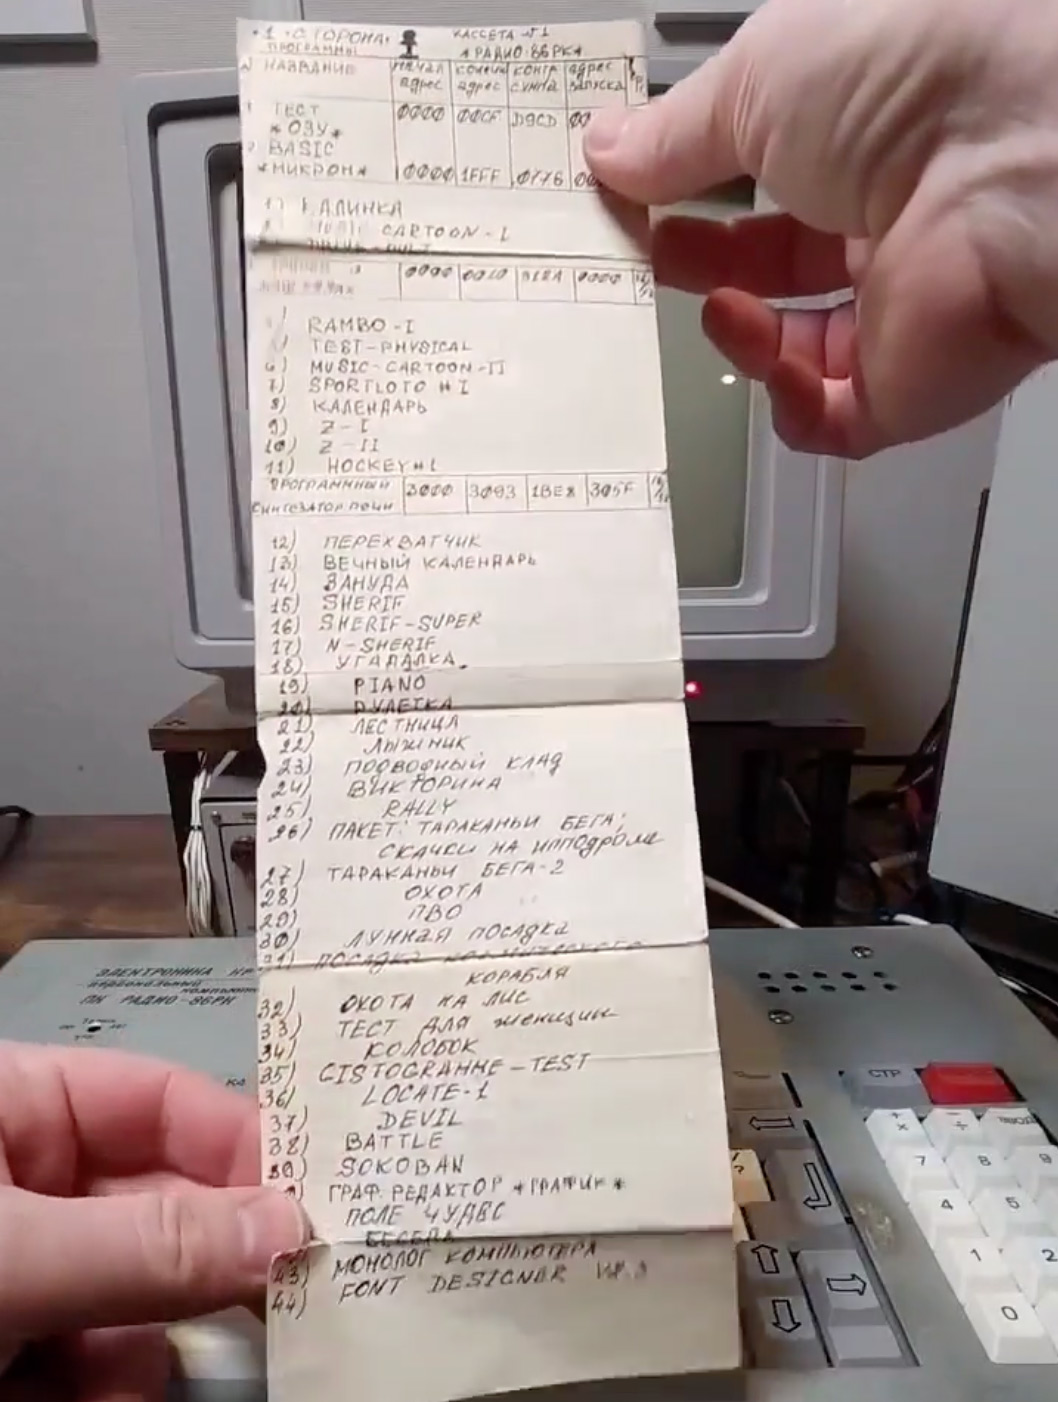 1 СТОРОНА КАССЕТА №1
ПРОГРАММЫ "РАДИО-86РК"
НАЗВАНИЕ начал адрес конечн адрес контр сумма адрес запуска
1 ТЕСТ *ОЗУ* 0000 00CF D9CD
2 BASIC *МИКРОН* 0000 1FFF 0776
1) КАЛИНКА
MUSIC CARTOON-I
0000 0000
RAMBO-I
TEST-PHYSICAL
6) MUSIC-CARTOON-II
7) SPORTLOTO #I
8) КАЛЕНДАРЬ
9) Z-I
10) Z-II
11) HOCKEY#1
ПРОГРАММНЫЙ СИНТЕЗАТОР РЕЧИ 3000 3093 1BE8 305F
12) ПЕРЕХВАТЧИК
13) ВЕЧНЫЙ КАЛЕНДАРЬ
14) ЗАНУДА
15) SHERIF
16) SHERIF-SUPER
17) N-SHERIF
18) УГАДАЛКА.
19) PIANO
20) РУЛЕТКА
21) ЛЕСТНИЦА
22) ЛЫЖНИК
23) ПОДВОДНЫЙ КЛАД
24) ВИКТОРИНА
25) RALLY
26) ПАКЕТ: ТАРАКАНЬИ БЕГА;
СКАЧКИ НА ИППОДРОМЕ
27) ТАРАКАНЬИ БЕГА-2
28) ОХОТА
29) ПВО
30) ЛУННАЯ ПОСАДКА
31) ПОСАДКА КОСМИЧЕСКОГО
КОРАБЛЯ
32) ОХОТА НА ЛИС
33) ТЕСТ ДЛЯ ЖЕНЩИН
34) КОЛОБОК
35) GISTOGRAMME-TEST
36) LOCATE-1
37) DEVIL
38) BATTLE
39) SOKOBAN
ГРАФ. РЕДАКТОР *ГРАФИК*
ПОЛЕ ЧУДЕС
БЕСЕДА
43) МОНОЛОГ КОМПЬЮТЕРА
44) FONT DESIGNER
ЭЛЕКТРОНИКА КР
персональный компьютер
ПК РАДИО-86РК
СТР
+ ×
- ÷
ВВОД
7 8 9
4 5
1 2
0